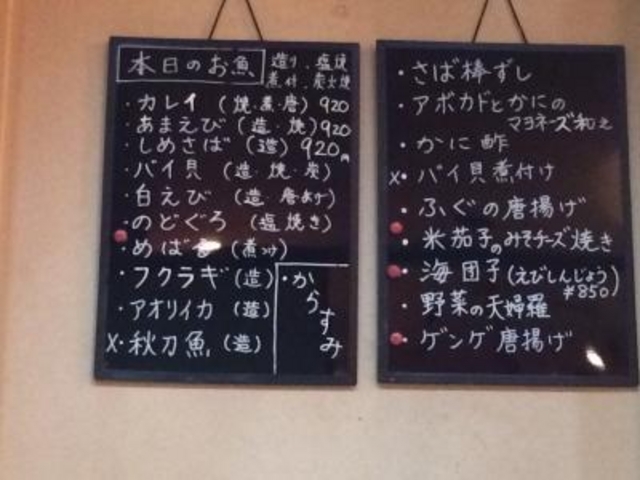 本日のお魚
造り．塩焼
煮付．炭火焼
・カレイ（焼・煮・唐）920
・あまえび（造・焼）920
・しめさば（造）920円
・バイ貝（造・焼・炭）
・白えび（造・唐あげ）
・のどぐろ（塩焼き）
・めばる（煮つけ）
・フクラギ（造）
・アオリイカ（造）
X・秋刀魚（造）
・からすみ
・さば棒ずし
・アボカドとかにの
マヨネーズ和え
・かに酢
x・バイ貝煮付け
・ふぐの唐揚げ
・米茄子のみそチーズ焼き
・海団子（えびしんじょう）
¥850
・野菜の天婦羅
・ゲンゲ唐揚げ